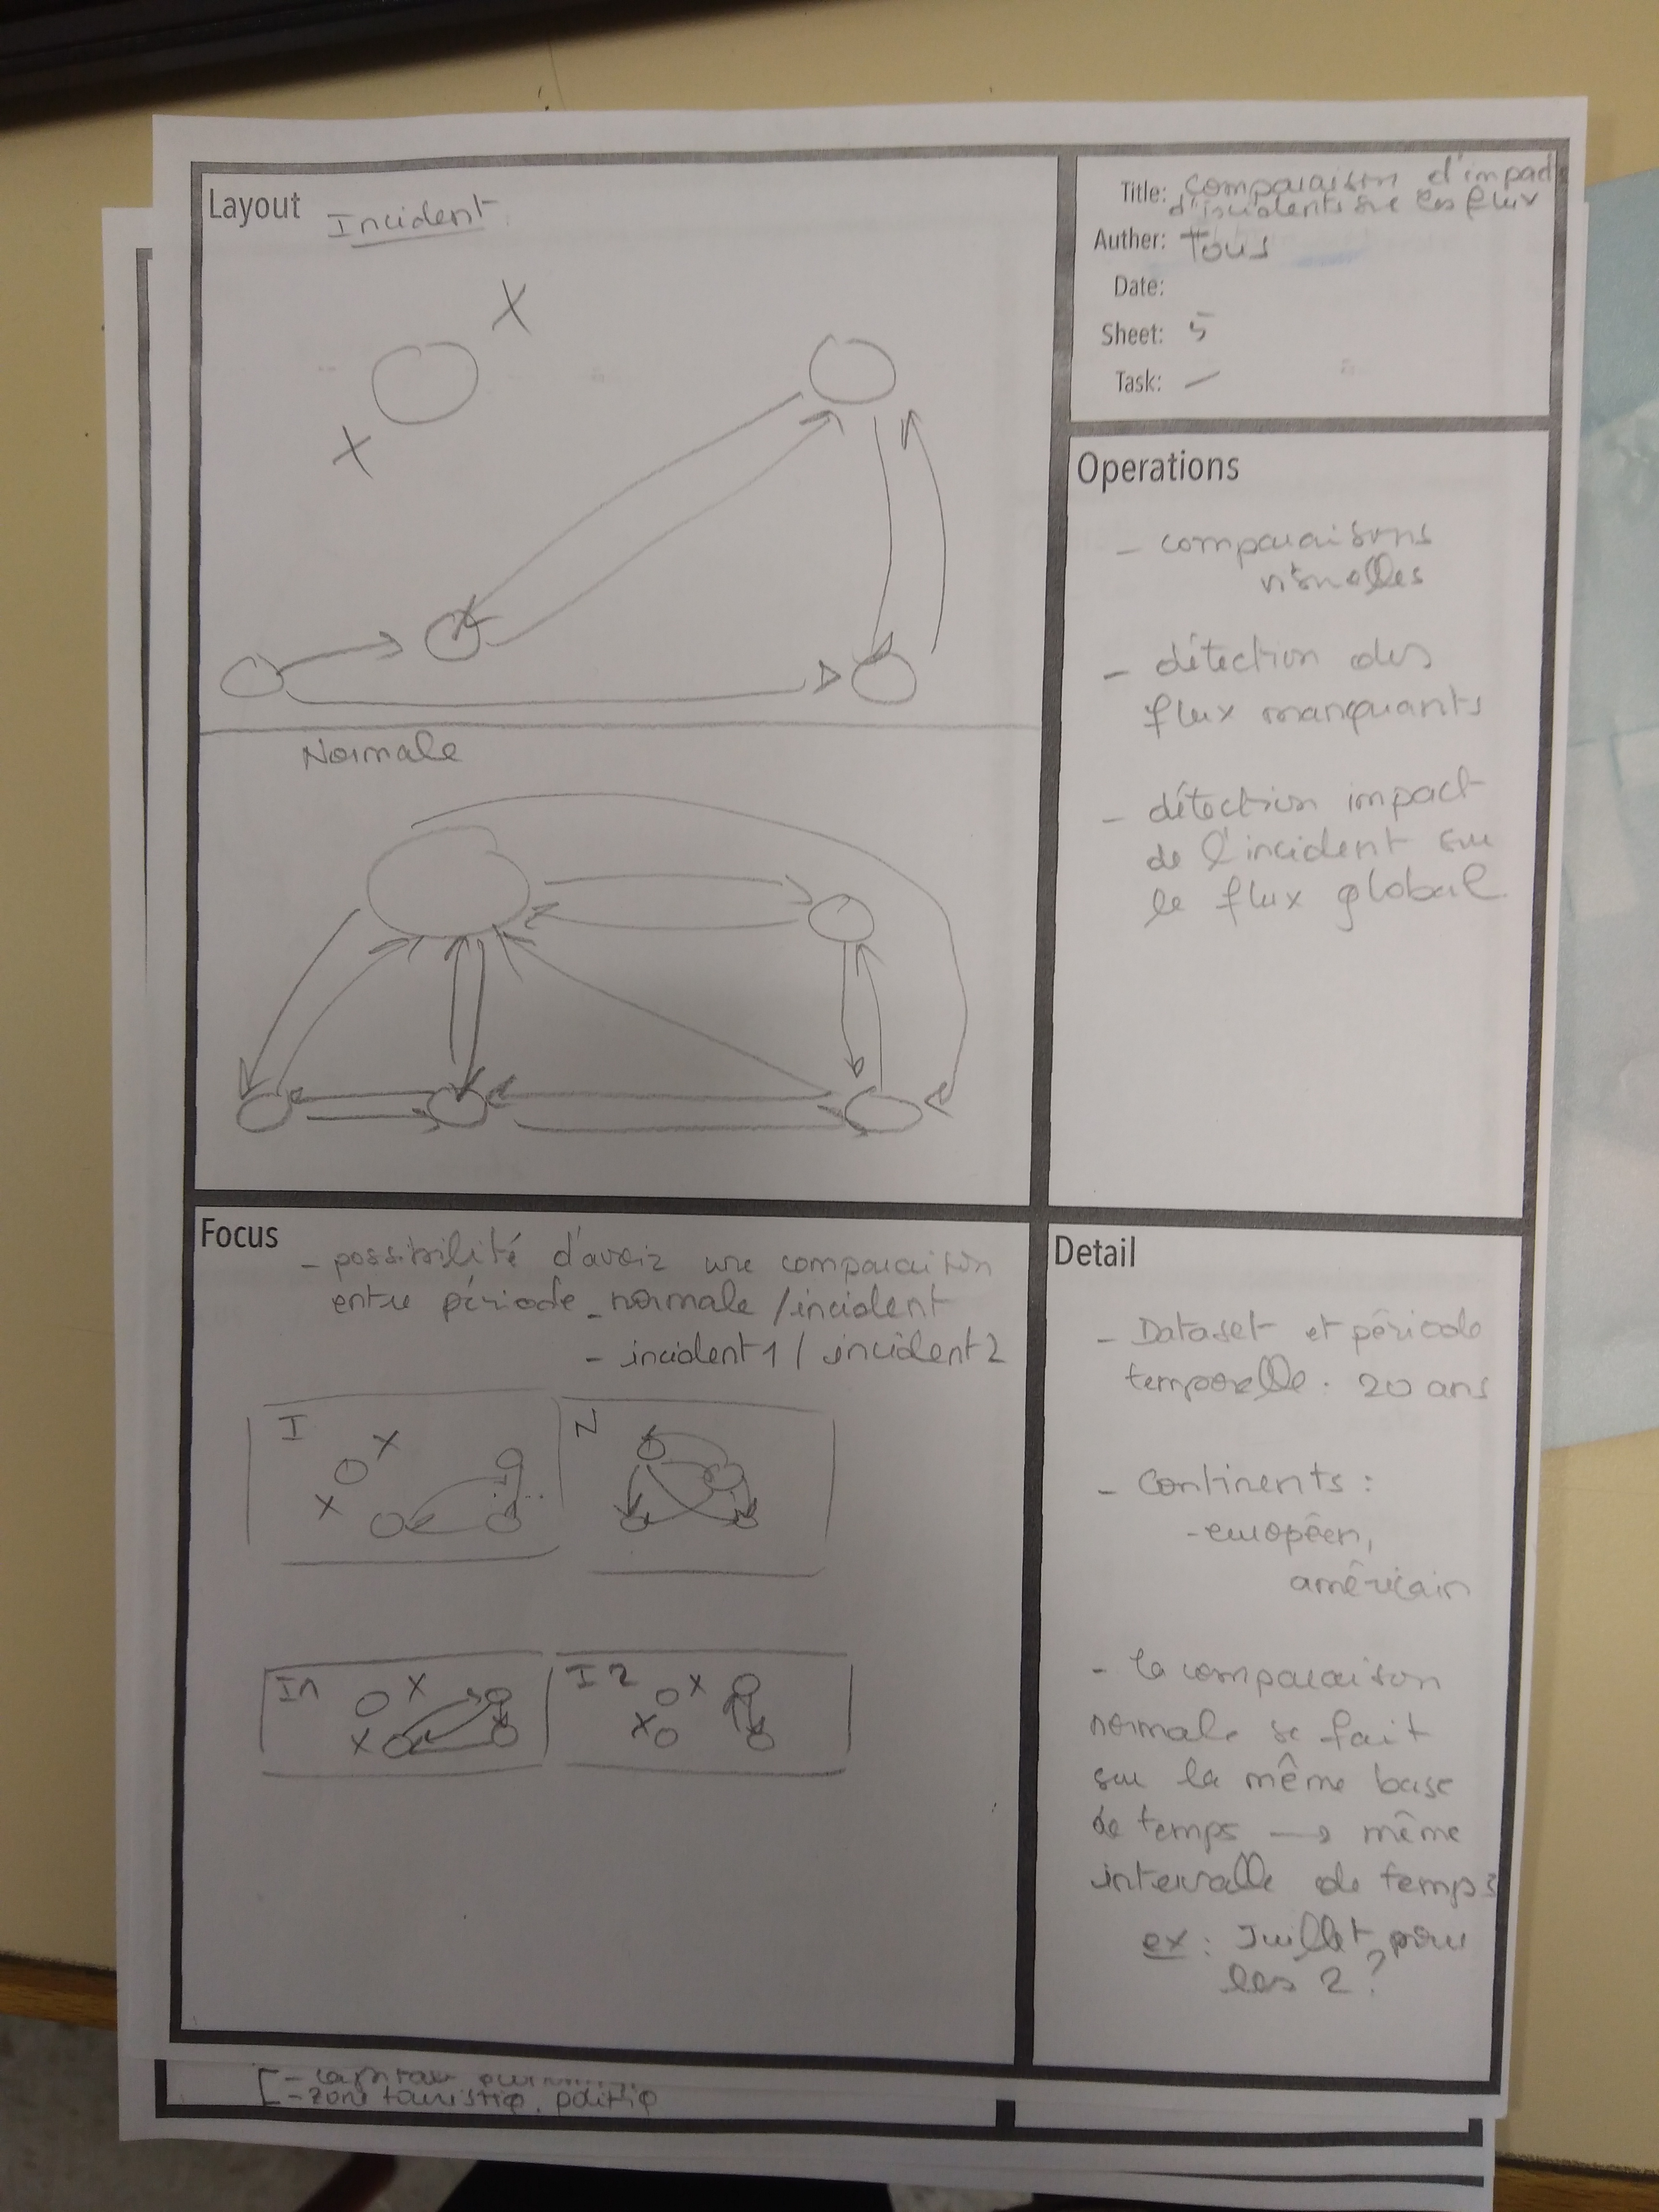 Layout
Incident
X
X
Normale
Title: comparaison d'impact
d'incidents sur les flux
Auther: Tous
Date:
Sheet: 5
Task: —
Operations
- comparaisons
visuelles
- détection des
flux manquants
- détection impact
de l'incident sur
le flux global
Focus
- possibilité d'avoir une comparaison
entre période - normale / incident
- incident 1 / incident 2
I
X
X
N
I1
X
X
I2
X
X
Detail
- Dataset et période
temporelle : 20 ans
- Continents :
- européen,
américain
- la comparaison
normale se fait
sur la même base
de temps → même
intervalle de temps
ex : Juillet pour
les 2 ?
- zone touristiq, politiq